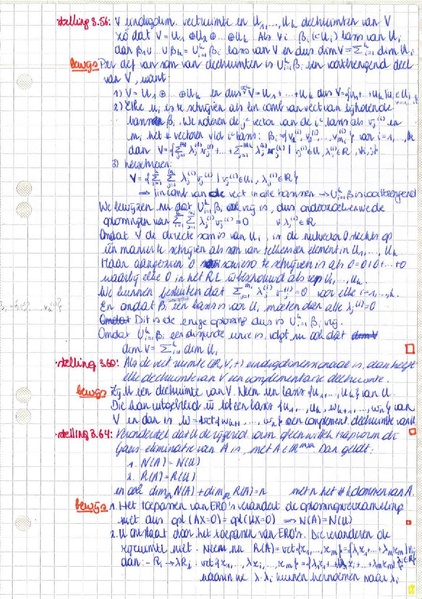 stelling 3.56: V eindigdim. vectruimte en U₁,...,Uₖ deelruimten van V
zo dat V = U₁ ⊕ U₂ ⊕ ... ⊕ Uₖ. Als ∀i βᵢ (⊂ Uᵢ) basis van Uᵢ
dan β₁ ∪ ... ∪ βₖ = ∪ᵢ₌₁ᵏ βᵢ basis van V en dus dim V = Σᵢ₌₁ᵏ dim Uᵢ
Bewijs Per def van som van deelruimten is ∪ᵢ₌₁ᵏ βᵢ een voortbrengend deel
van V, want
1) V = U₁ ⊕ ... ⊕ Uₖ en dus V = U₁ + ... + Uₖ dus V = {u₁ + ... + uₖ | uᵢ ∈ Uᵢ}
2) Elke uᵢ is te schrijven als lin comb van vect van bijhorende
basis βᵢ. We noteren de jᵉ vector van de iᵉ basis als vⱼ⁽ⁱ⁾ en
mᵢ het # vectoren v/d iᵉ basis: βᵢ = {v₁⁽ⁱ⁾, v₂⁽ⁱ⁾, ... } voor i = 1,...,k
dan V =
3) herschrijven:
V = { Σᵢ₌₁ᵏ Σⱼ₌₁ᵐⁱ λⱼ⁽ⁱ⁾ vⱼ⁽ⁱ⁾ | vⱼ⁽ⁱ⁾ ∈ βᵢ, λⱼ⁽ⁱ⁾ ∈ ℝ}
⟹ lin comb van de vect in alle basissen ⟹ ∪ᵢ₌₁ᵏ βᵢ is voortbrengend
We bewijzen nu dat ∪ᵢ₌₁ᵏ βᵢ ook vrij is, dus onderzoeken we de
oplossingen van Σᵢ₌₁ᵏ Σⱼ₌₁ᵐⁱ λⱼ⁽ⁱ⁾ vⱼ⁽ⁱ⁾ = 0 v λⱼ⁽ⁱ⁾ ∈ ℝ
Omdat V de directe som is van U₁,... is de nulvector 0 slechts op
één manier te schrijven als som van telkens een element in U₁,...,Uₖ
Maar aangezien 0 sowieso te schrijven is als 0 = 0 + 0 + ... + 0
waarbij elke 0 in het RL
We kunnen besluiten dat Σⱼ₌₁ᵐⁱ λⱼ⁽ⁱ⁾ vⱼ⁽ⁱ⁾ = 0 voor elke i = 1,...,k
En omdat βᵢ een basis is voor Uᵢ moeten alle λⱼ⁽ⁱ⁾ = 0
Dit is de enige oplossing dus is ∪ᵢ₌₁ᵏ βᵢ vrij.
Omdat ∪ᵢ₌₁ᵏ βᵢ een disjuncte unie is, volgt nu ook dat
dim V = Σᵢ₌₁ᵏ dim Uᵢ
stelling 3.60: Als de vectruimte (ℝ, V, +) eindigdimensionaal is, dan heeft
elke deelruimte van V een complementaire deelruimte.
Bewijs Zij U een deelruimte van V. Neem een basis {u₁,...,uₖ} van U
Die kan uitgebreid w tot een basis {u₁,...,uₖ, wₖ₊₁,...,wₙ} van
V en dan is W = vct{wₖ₊₁,...,wₙ} een complement. deelruimte van U
stelling 3.64: Veronderstel dat U de rijgereduceerde
Gauss-eliminatie van A is, met A ∈ ℝᵐˣⁿ. Dan geldt:
1. N(A) = N(U)
2. R(A) = R(U)
en ook dim N(A) + dim R(A) = n met n het # kolommen van A.
Bewijs 1. Het toepassen van ERO's verandert de oplossingsverzameling
niet dus opl(AX=0) = opl(UX=0) ⟹ N(A) = N(U)
2. U ontstaat door het toepassen van ERO's. Die veranderen de
rijruimte niet. Neem nu R(A) = vct{x₁,...,xₘ} = {λ₁x₁ + ... + λₘxₘ | λᵢ ∈ ℝ}
dan: - Rᵢ → λRᵢ : vct{x₁,..., λxᵢ,..., xₘ} =
waarin we λ·λᵢ kunnen hernoemen naar λᵢ